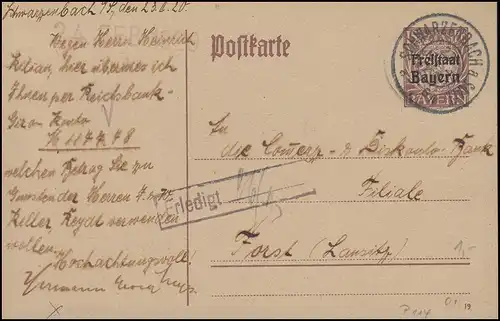 Schwarzenbach S/S, den 23.6.20.
Wegen Herrn Heinrich
Kilian, hier überwies ich
Ihnen per Reichsbank-
Giro-Konto
M 1177.78
welchen Betrag Sie zu
Gunsten der Herren
Keller, Reydt verwenden
wollen.
Hochachtungsvoll!
Hermann Georg
Postkarte
SCHWARZENBACH a. S.
Freistaat
Bayern
BAYERN
An
die Commerz- & Diskonto-Bank
Filiale
Erledigt
Forst (Lausitz)
1,-
19